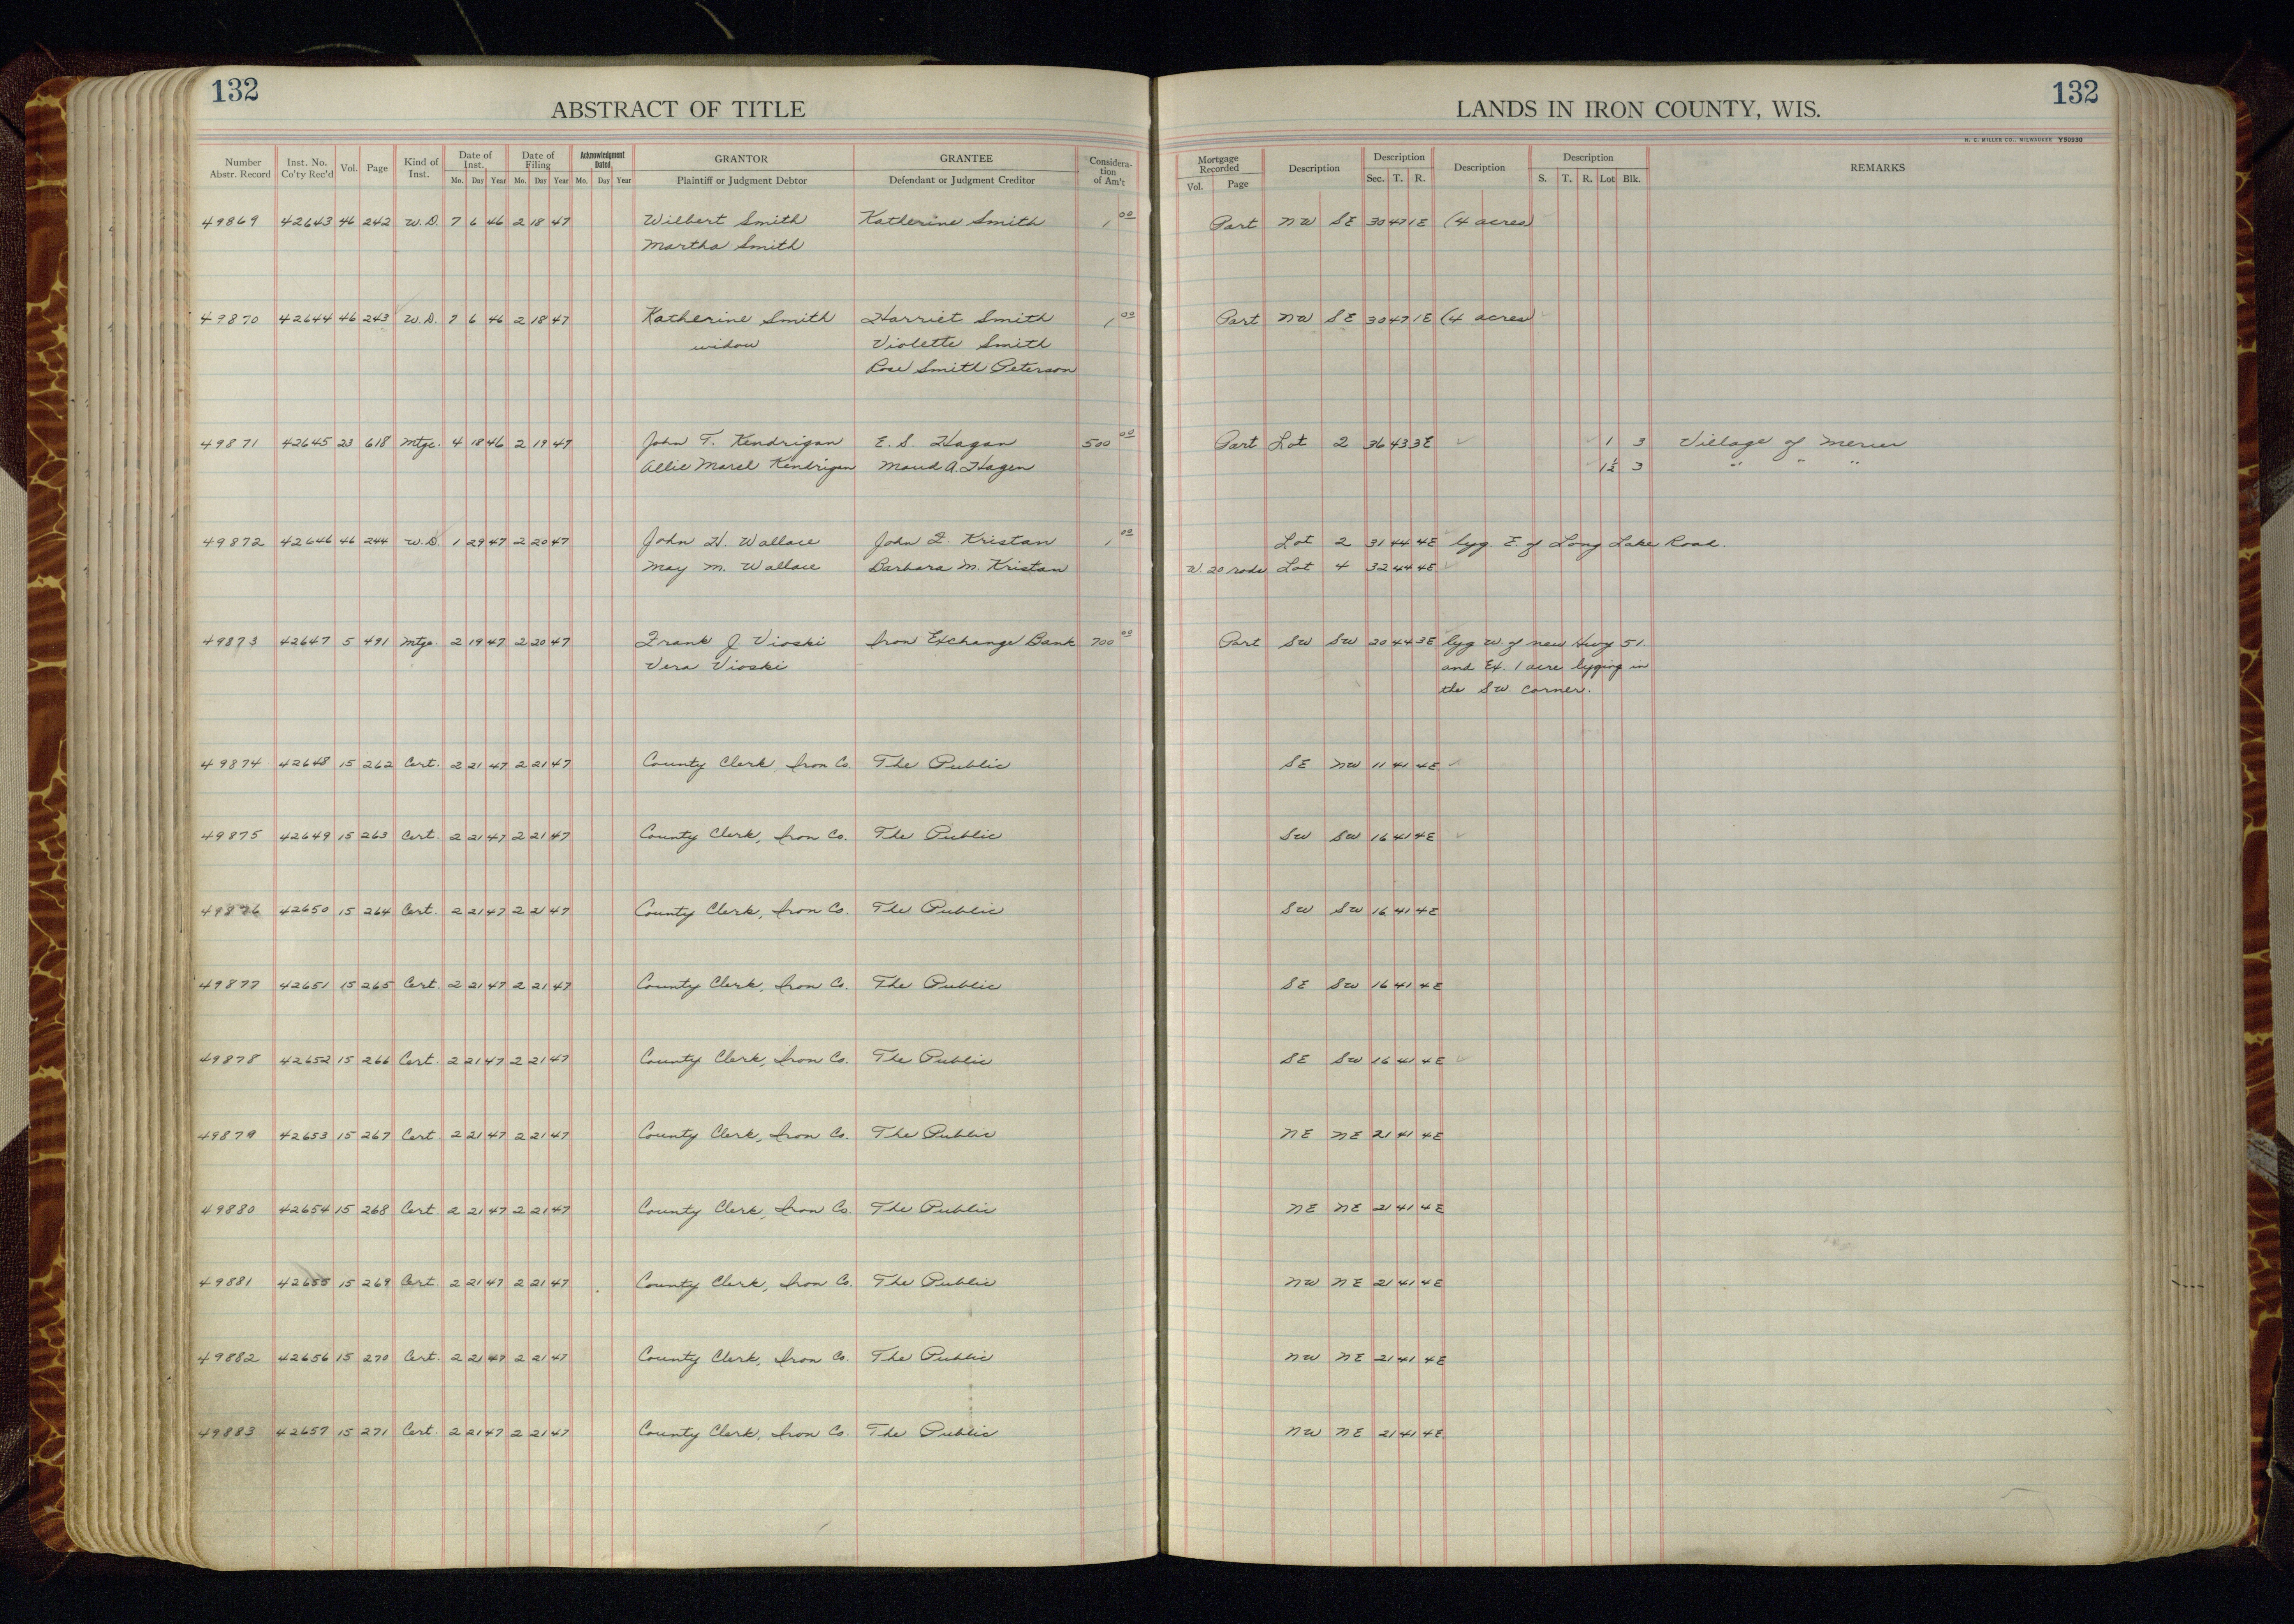 132
132
ABSTRACT OF TITLE
LANDS IN IRON COUNTY, WIS.
H. C. MILLER CO., MILWAUKEE Y50930
Number Abstr. Record Inst. No. Co'ty Rec'd Vol. Page Kind of Inst. Date of Inst. Mo. Day Year Date of Filing Mo. Day Year Acknowledgment Dated Mo. Day Year GRANTOR Plaintiff or Judgment Debtor GRANTEE Defendant or Judgment Creditor Consideration of Am't Mortgage Recorded Vol. Page Description Description Sec. T. R. Description Description S. T. R. Lot Blk. REMARKS
49869 42643 46 242 W.D. 7 6 46 2 18 47 Wilbert Smith Katherine Smith 1 00 Part NW SE 30 47 1E (4 acres)
Martha Smith
49870 42644 46 243 W.D. 7 6 46 2 18 47 Katherine Smith Harriet Smith 1 00 Part NW SE 30 47 1E (4 acres)
widow Violette Smith
Rose Smith Peterson
49871 42645 23 618 Mtge. 4 18 46 2 19 47 John T. Kendrigan E. S. Hagen 500 00 Part Lot 2 36 43 3E 1 3 Village of Mercer
Allie Marel Kendrigan Maud A. Hagen 1½ 3 " " "
49872 42646 46 244 W.D. 1 29 47 2 20 47 John H. Wallace John F. Kristan 1 00 Lot 2 31 44 4E lyg. E. of Long Lake Road.
May M. Wallace Barbara M. Kristan W. 20 rods Lot 4 32 44 4E
49873 42647 5 491 Mtge 2 19 47 2 20 47 Frank J. Vioski Iron Exchange Bank 700 00 Part SW SW 20 44 3E lyg W. of new Hwy 51.
Vera Vioski and Ex. 1 acre lyging in
the SW. corner.
49874 42648 15 262 Cert. 2 21 47 2 21 47 County Clerk, Iron Co. The Public SE NW 11 41 4E
49875 42649 15 263 Cert. 2 21 47 2 21 47 County Clerk, Iron Co. The Public SW SW 16 41 4E
49876 42650 15 264 Cert. 2 21 47 2 21 47 County Clerk, Iron Co. The Public SW SW 16 41 4E
49877 42651 15 265 Cert. 2 21 47 2 21 47 County Clerk, Iron Co. The Public SE SW 16 41 4E
49878 42652 15 266 Cert. 2 21 47 2 21 47 County Clerk, Iron Co. The Public SE SW 16 41 4E
49879 42653 15 267 Cert. 2 21 47 2 21 47 County Clerk, Iron Co. The Public NE NE 21 41 4E
49880 42654 15 268 Cert. 2 21 47 2 21 47 County Clerk, Iron Co. The Public NE NE 21 41 4E
49881 42655 15 269 Cert. 2 21 47 2 21 47 County Clerk, Iron Co. The Public NW NE 21 41 4E
49882 42656 15 270 Cert. 2 21 47 2 21 47 County Clerk, Iron Co. The Public NW NE 21 41 4E
49883 42657 15 271 Cert. 2 21 47 2 21 47 County Clerk, Iron Co. The Public NW NE 21 41 4E